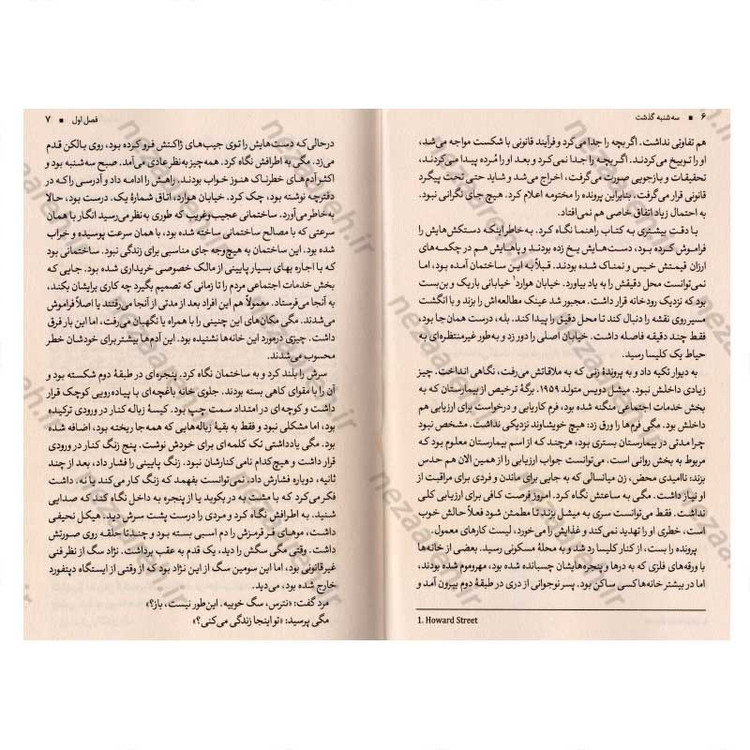 ۶ ■ سه‌شنبه گذشت
هم تفاوتی نداشت. اگر بچه را جدا می‌کرد و فرآیند قانونی با شکست مواجه می‌شد،
او را توبیخ می‌کردند. اگر بچه را جدا نمی‌کرد و بعد او را مُرده پیدا می‌کردند،
تحقیقات و بازجویی صورت می‌گرفت، اخراج می‌شد و شاید حتی تحت پیگرد
قانونی قرار می‌گرفت. بنابراین پرونده را مختومه اعلام کرد. هیچ جای نگرانی نبود.
به احتمال زیاد اتفاق خاصی هم نمی‌افتاد.
با دقت بیشتری به کتاب راهنما نگاه کرد. به خاطر اینکه دستکش‌هایش را
فراموش کرده بود، دست‌هایش یخ زده بودند و پاهایش هم در چکمه‌های
ارزان قیمتش خیس و نمناک شده بودند. قبلاً به این ساختمان آمده بود، اما
نمی‌توانست محل دقیقش را به یاد بیاورد. خیابان هوارد¹ خیابانی باریک و بن‌بست
بود که نزدیک رودخانه قرار داشت. مجبور شد عینک مطالعه‌اش را بزند و با انگشت
مسیر روی نقشه را دنبال کند تا محل دقیق را پیدا کند. بله، درست همان‌جا بود،
فقط چند دقیقه فاصله داشت. خیابان اصلی را دور زد و به‌طور غیرمنتظره‌ای به
حیاط یک کلیسا رسید.
به دیوار تکیه داد و به پرونده‌ٔ زنی که به ملاقاتش می‌رفت، نگاهی انداخت. چیز
زیادی داخلش نبود. میشل دویس متولد ۱۹۵۹. برگهٔ ترخیص از بیمارستان که به
بخش خدمات اجتماعی منگنه شده بود، فرم کاریابی و درخواست برای ارزیابی هم
داخلش بود. مگی فرم‌ها را ورق زد: هیچ خویشاوند نزدیکی نداشت. مشخص نبود
چرا مدتی در بیمارستان بستری بود، هرچند که از اسم بیمارستان معلوم بود که
مربوط به بخش روانی است. می‌توانست جواب ارزیابی را از همین الان هم حدس
بزند: ناامیدی محض، زن میانسالی که به جایی برای ماندن و فردی برای مراقبت از
او نیاز داشت. مگی به ساعتش نگاه کرد. امروز فرصت کافی برای ارزیابی کلی
نداشت. فقط می‌توانست سری به میشل بزند تا مطمئن شود فعلاً حالش خوب
است، خطری او را تهدید نمی‌کند و غذایش را می‌خورد، لیست کارهای معمول.
پرونده را بست، از کنار کلیسا رد شد و به محلهٔ مسکونی رسید. بعضی از خانه‌ها
با ورقه‌های فلزی که به درها و پنجره‌هایشان چسبانده شده بود، مهروموم شده بودند،
اما در بیشتر خانه‌ها کسی ساکن بود. پسر نوجوانی از دری در طبقهٔ دوم بیرون آمد و
1. Howard Street
فصل اول ■ ۷
درحالی‌که دست‌هایش را توی جیب‌های ژاکتش فرو کرده بود، روی بالکن قدم
می‌زد. مگی به اطرافش نگاه کرد. همه‌چیز به‌نظر عادی می‌آمد. صبح سه‌شنبه بود و
اکثر آدم‌های خطرناک هنوز خواب بودند. راهش را ادامه داد و آدرسی را که در
دفترچه نوشته بود، چک کرد. خیابان هوارد، اتاق شمارهٔ یک. درست بود، حالا
به خاطر می‌آورد. ساختمانی عجیب‌وغریب که طوری به‌نظر می‌رسید انگار با همان
سرعتی که با مصالح ساختمانی ساخته شده بود، با همان سرعت پوسیده و خراب
شده بود. این ساختمان به هیچ‌وجه جای مناسبی برای زندگی نبود. ساختمانی بود
که با اجاره بهای بسیار پایینی از مالک خصوصی خریداری شده بود. جایی که
بخش خدمات اجتماعی مردم را تا زمانی که تصمیم بگیرد چه کاری برایشان بکند،
به آنجا می‌فرستاد. معمولاً هم این افراد بعد از مدتی از آنجا می‌رفتند یا اصلاً فراموش
می‌شدند. مگی مکان‌های این چنینی را با همراه یا نگهبان می‌رفت، اما این بار فرق
داشت. چیزی درمورد این خانه‌ها نشنیده بود. این آدم‌ها بیشتر برای خودشان خطر
محسوب می‌شدند.
سرش را بلند کرد و به ساختمان نگاه کرد. پنجره‌ای در طبقهٔ دوم شکسته بود و
آن را با مقوای کاهی بسته بودند. جلوی خانه باغچه‌ای با پیاده‌رویی کوچک قرار
داشت و کوچه‌ای در امتداد سمت چپ بود. کیسهٔ زباله کنار در ورودی ترکیده
بود، اما مشکلی نبود و فقط به بقیهٔ زباله‌هایی که همه‌جا ریخته بود، اضافه شده
بود. مگی یادداشتی تک کلمه‌ای برای خودش نوشت. پنج زنگ کنار در ورودی
قرار داشت و هیچ‌کدام نامی کنارشان نبود. زنگ پایینی را فشار داد، بعد از چند
ثانیه، دوباره فشارش داد. نمی‌توانست بفهمد که زنگ کار می‌کند یا نه. داشت
فکر می‌کرد که با مشت به در بکوبد یا از پنجره به داخل نگاه کند که صدایی
شنید. به اطرافش نگاه کرد و مردی را درست پشت سرش دید. هیکل نحیفی
داشت، موهای فر قرمزش را دم اسبی بسته بود و چندتا حلقه روی صورتش
داشت. وقتی مگی سگش را دید، یک قدم به عقب برداشت. نژاد سگ از نظر فنی
غیرقانونی بود، اما این سومین سگ از این نژاد بود که از وقتی از ایستگاه دپتفورد
خارج شده بود، می‌دید.
مرد گفت: «نترس، سگ خوبیه. این‌طور نیست، باز؟»
مگی پرسید: «تو اینجا زندگی می‌کنی؟»